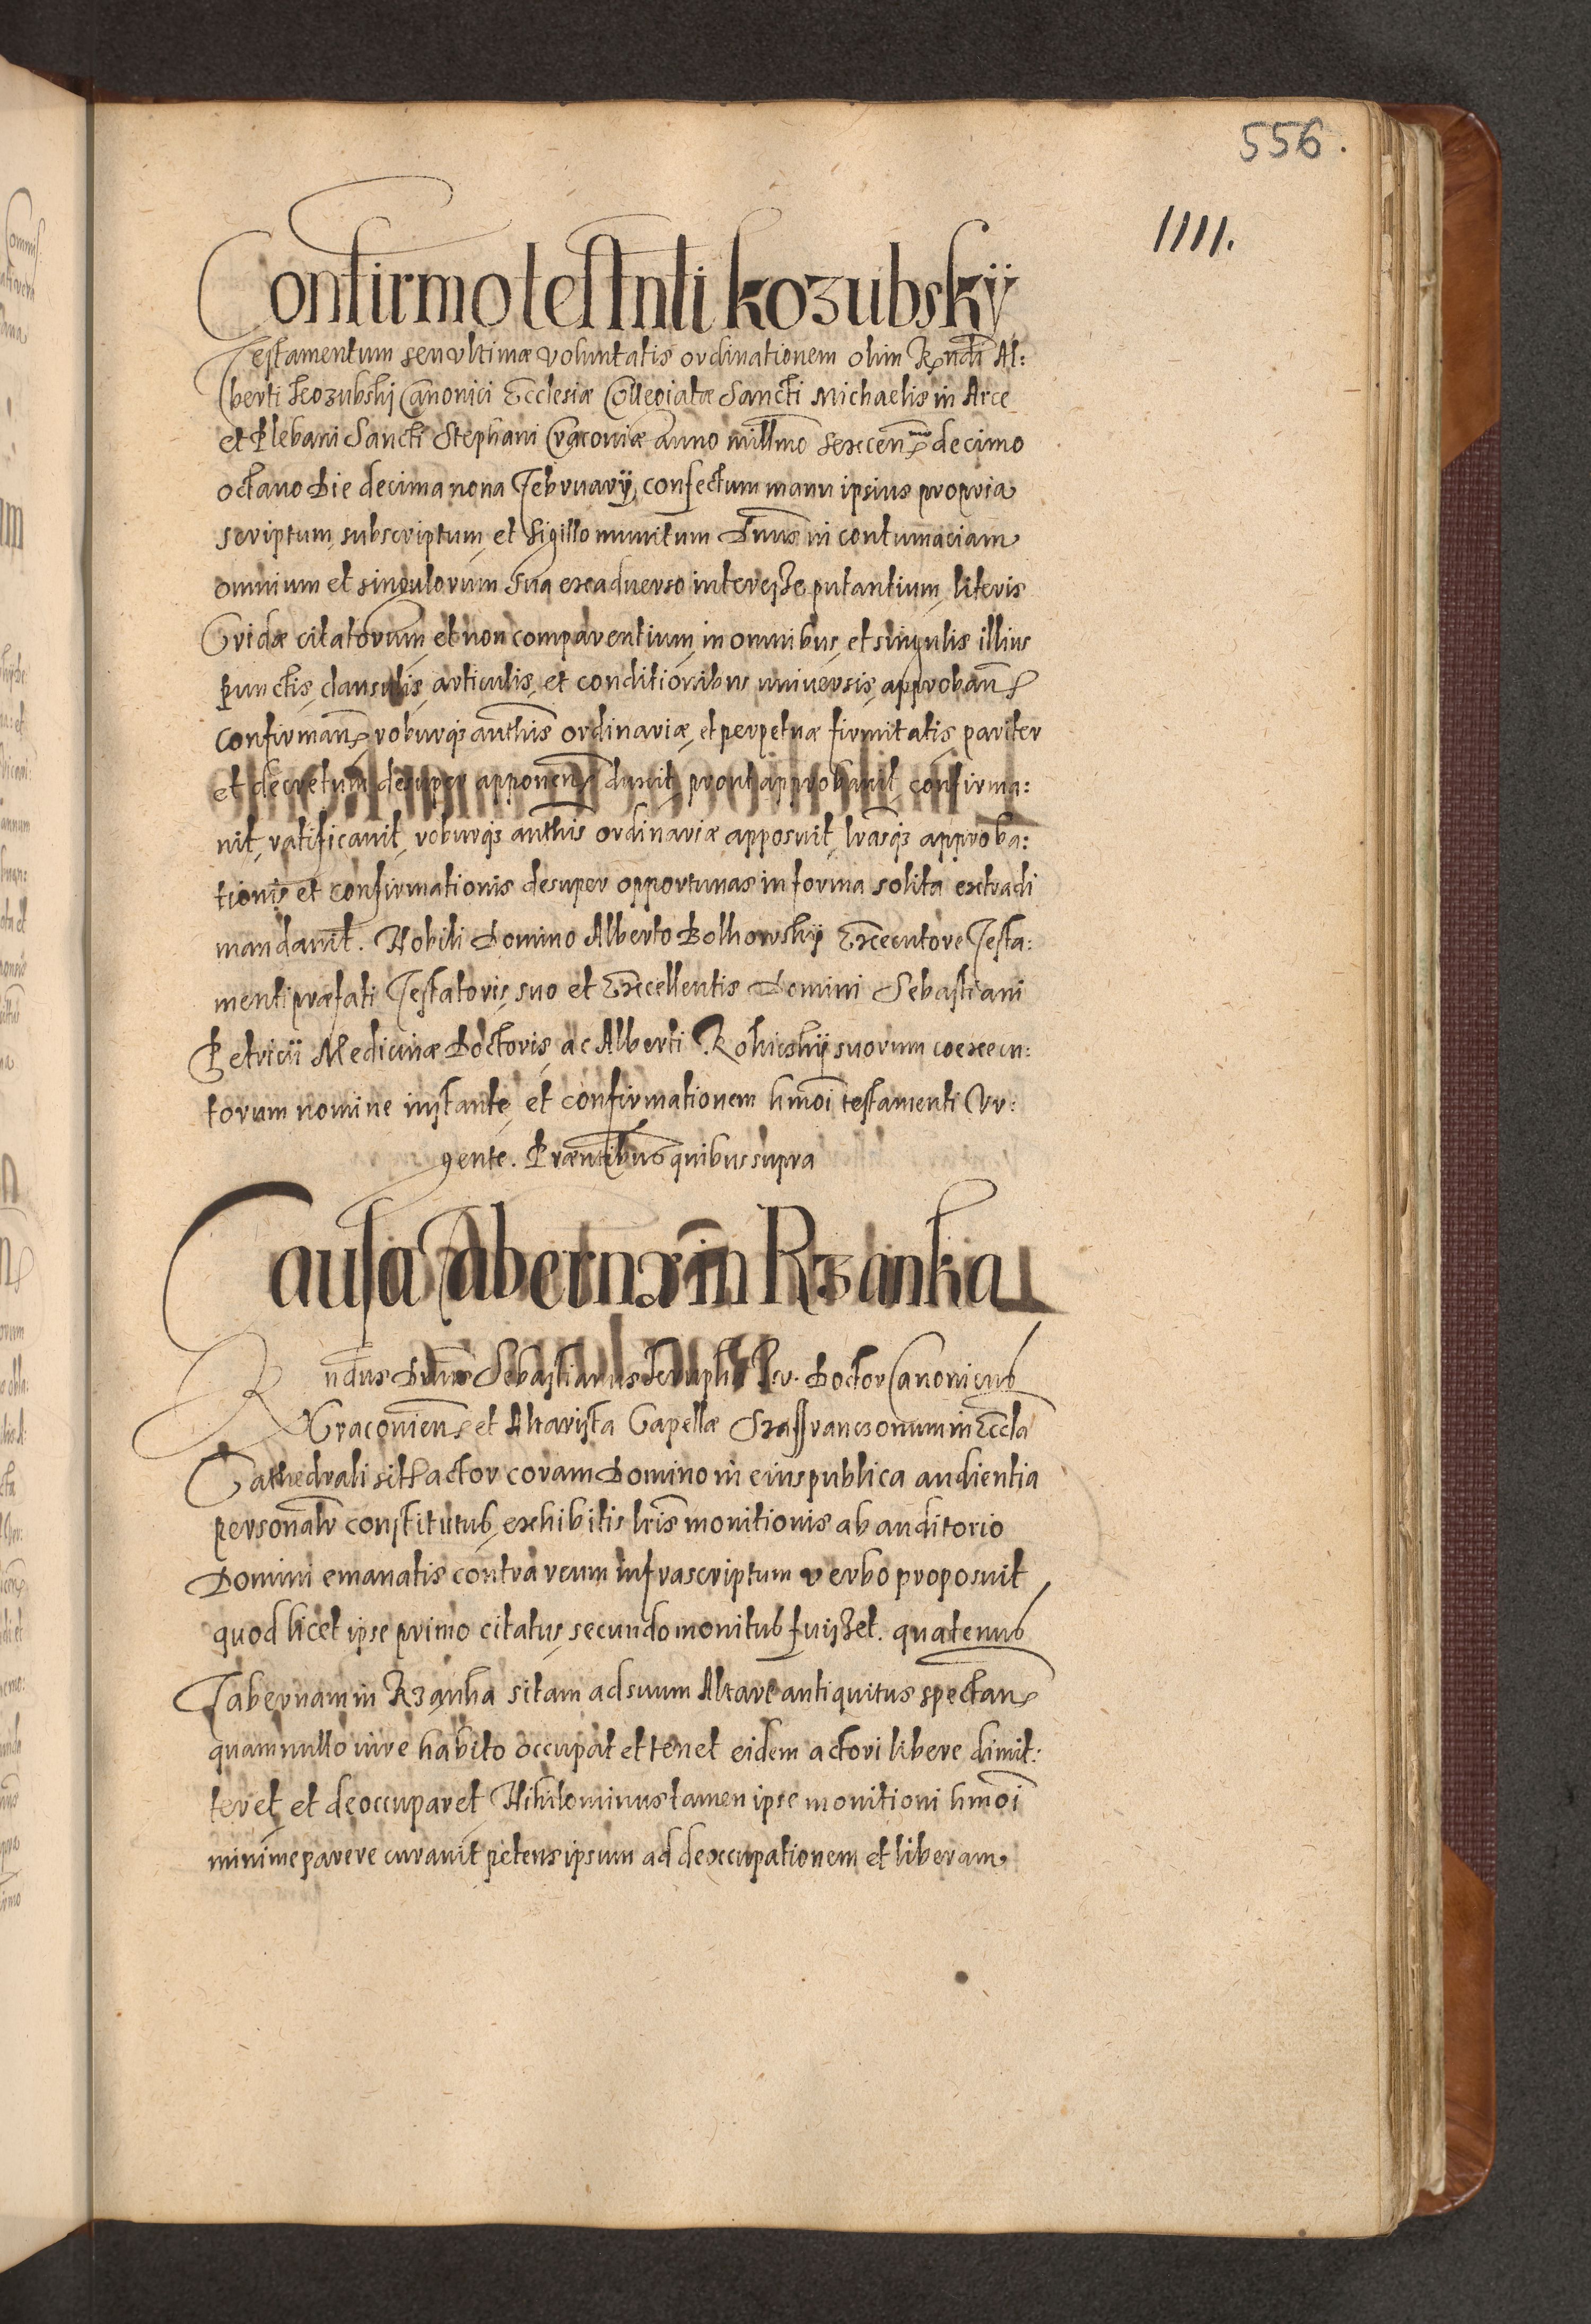 556.
1111.
Confirmo testnti Kozubskÿ
Testamentum seu vltimæ voluntatis ordinationem olim Rndi Al:
berti Kozubskij Canonici Ecclesiæ Collegiatæ Sancti Michaelis in Arce
et Plebani Sancti Stephani Cracouiæ anno millmo sexcenmo decimo
octauo Die decima nona Februarÿ, confectum manu ipsius propria
scriptum, subscriptum, et sigillo munitum Dnus in contumaciam
omnium et singulorum sua exaduerso interesse putantium, literis
Cridæ citatorum, et non comparentium, in omnibus, et singulis illius
punctis, clausulis, articulis, et conditionibus uniuersis, approban
confirman roburq; authis ordinariæ, et perpetuæ firmitatis, pariter
et decretum desuper apponen duxit, prout approbauit, confirma:
uit, ratificauit, roburq; authis ordinariæ apposuit, lrasq; approba:
tionis et confirmationis desuper opportunas in forma solita extradi
mandauit. Nobili Domino Alberto Bolhowskÿ Executore Testa:
menti præfati Testatoris, suo et Excellentis Domini Sebastiani
Petricii Medicinæ Doctoris, ac Alberti Rohuskÿ suorum coexecu:
torum nomine instante, et confirmationem hmoi testamenti Vr:
gente. Præntibus quibus supra
Causa Tabernæ in Rzanka
Rndus Dnus Sebastianus Doctor Canonicus
Cracouien et Altarista Capellæ Szaffrancsonum in Eccla
Cathedrali sit actor coram Domino in eius publica audientia
personalr constitutus, exhibitis lris monitionis ab auditorio
Domini emanatis contra reum infrascriptum verbo proposuit
quod licet ipse primo citatus, secundo monitus fuisset. quatenus
Tabernam in Rzanka sitam ad suum Altare antiquitus spectan
quam nullo iure habito occupat et tenet eidem actori libere dimit:
teret, et deoccuparet, Nihilominus tamen ipse monitioni hmoi
minime parere curauit petens ipsum ad deoccupationem et liberam